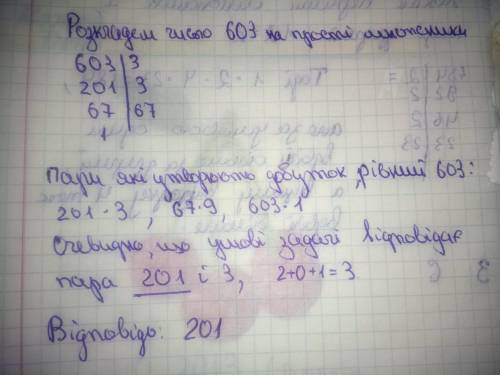 Розкладем число 603 на прості множники
603 | 3
201 | 3
67 | 67
1
Пари які утворюють добуток, рівний 603:
201·3, 67·9, 603·1
Очевидно, що умові задачі відповідає
пара 201 і 3, 2+0+1=3
Відповідь: 201